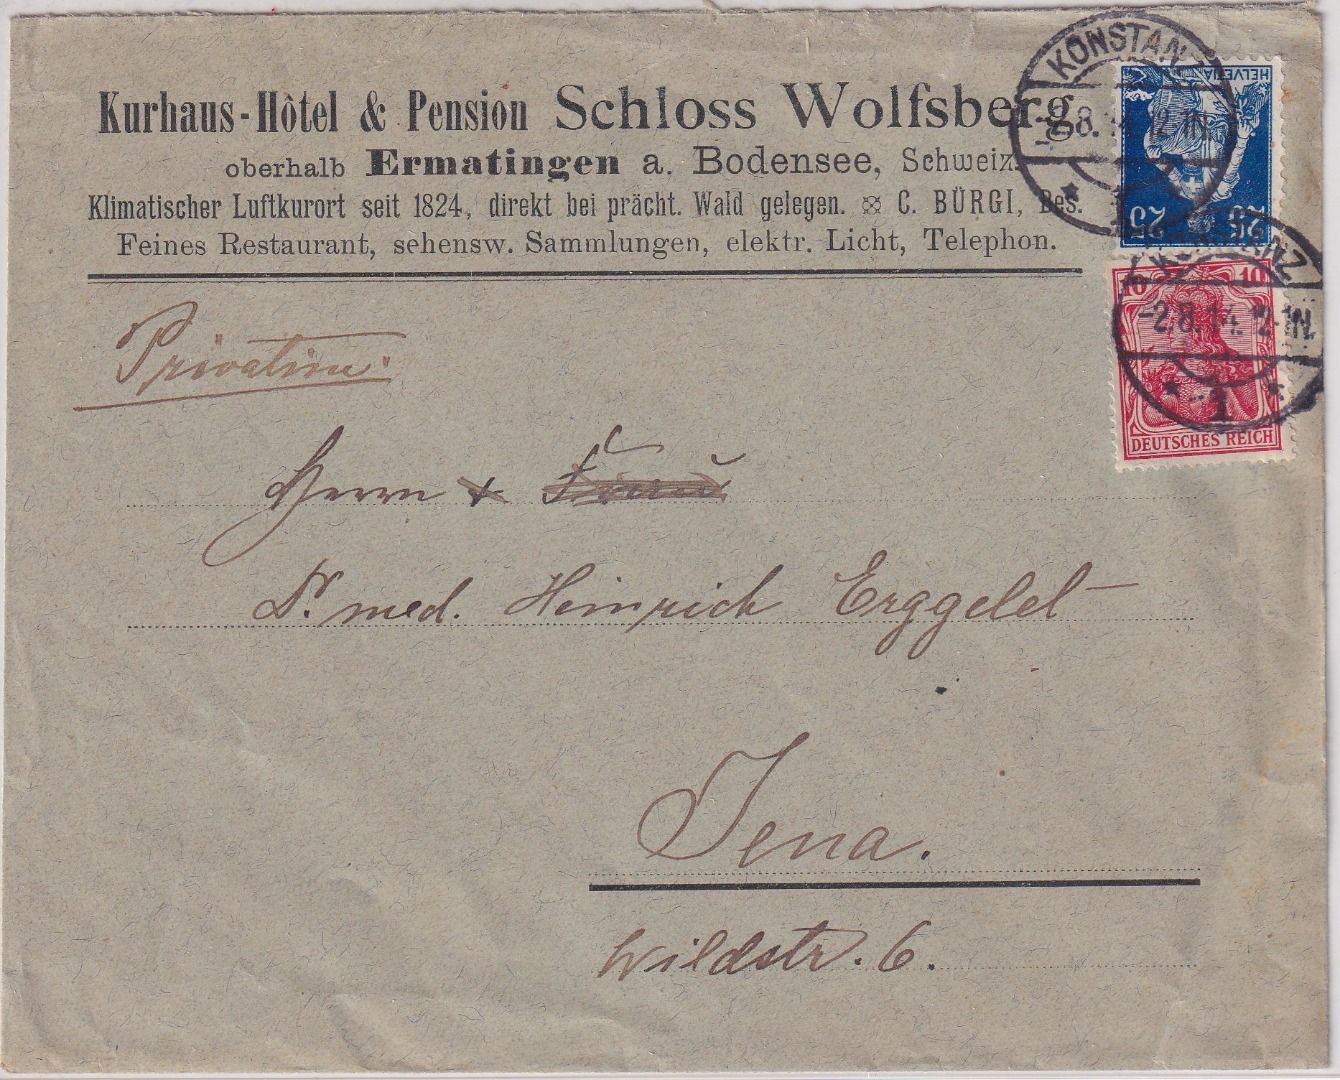 Kurhaus-Hôtel & Pension Schloss Wolfsberg
oberhalb Ermatingen a. Bodensee, Schweiz.
Klimatischer Luftkurort seit 1824, direkt bei prächt. Wald gelegen. C. BÜRGI, Bes.
Feines Restaurant, sehensw. Sammlungen, elektr. Licht, Telephon.
KONSTANZ
HELVETIA
25 25
KONSTANZ
-2.8.14. 12-1N.
1
10 10
DEUTSCHES REICH
Privatim.
Herrn
Dr. med. Heinrich Erggelet
Jena.
Wildstr. 6.